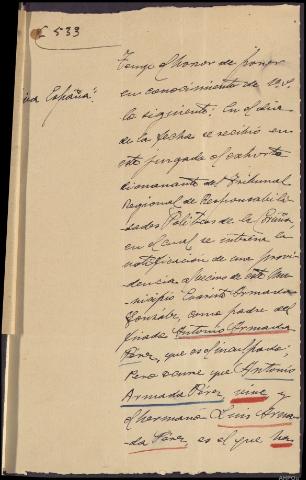 C 533
va España".
Tengo el honor de poner
en conocimiento de V.S.
lo siguiente: En el dia
de la fecha se recibió en
este juzgado el exhorto
dimanante del Tribunal
Regional de Responsabili
dades Políticas de la Coruña,
en el cual se interesa la
notificación de una provi
dencia al vecino de este Mu
nicipio Evaristo Armada
González, como padre del
finado Antonio Armada
Pérez, que es el inculpado;
Pero ocurre que Antonio
Armada Pérez, vive y
el hermano Luis Arma
da Pérez, es el que ha